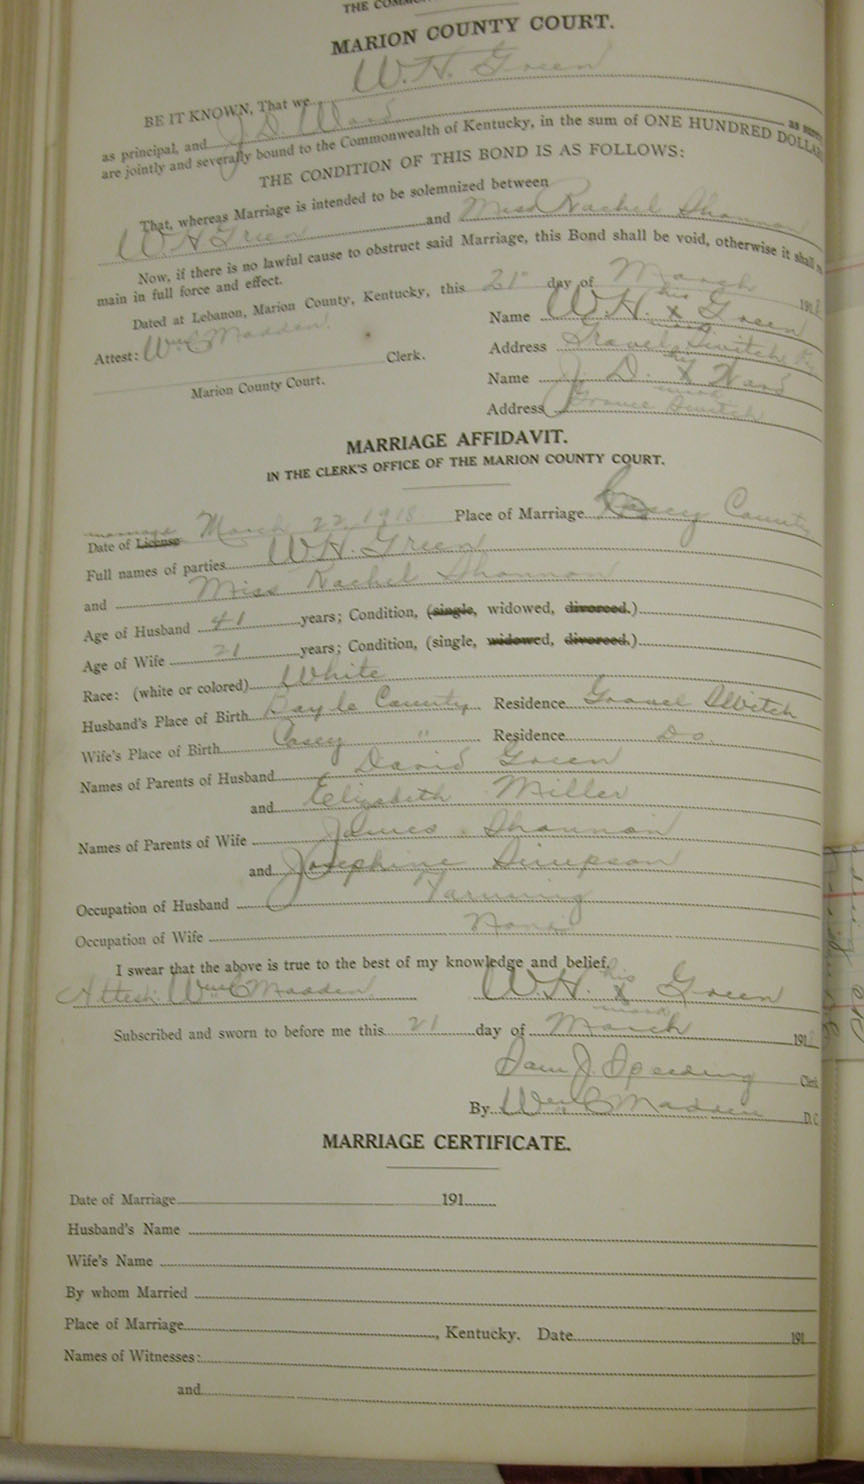 THE COMM
MARION COUNTY COURT.
BE IT KNOWN, That we W. H. Green
as principal, and J. D. Ward as sure
are jointly and severally bound to the Commonwealth of Kentucky, in the sum of ONE HUNDRED DOLLAR
THE CONDITION OF THIS BOND IS AS FOLLOWS:
That, whereas Marriage is intended to be solemnized between
W. H Green and Miss Rachel Shannon
Now, if there is no lawful cause to obstruct said Marriage, this Bond shall be void, otherwise it shall r
main in full force and effect.
Dated at Lebanon, Marion County, Kentucky, this 21" day of March 191
Name W. H. his x mark Green
Attest: Wm C Madden. Clerk.
Address Gravel Switch Ky
Marion County Court.
Name J. D. his X mark Ward
Address Gravel Switch
MARRIAGE AFFIDAVIT.
IN THE CLERK'S OFFICE OF THE MARION COUNTY COURT.
marriage
Date of License March 22, 1918 Place of Marriage Casey County
Full names of parties W. H. Green
and Miss Rachel Shannon
Age of Husband 41 years; Condition, (single, widowed, divorced.)
Age of Wife 21 years; Condition, (single, widowed, divorced.)
Race: (white or colored) White
Husband's Place of Birth Boyle County Residence Gravel Switch
Wife's Place of Birth Casey " Residence Do.
Names of Parents of Husband David Green
and Elizabeth Miller
Names of Parents of Wife James Shannon
and Josephine Simpson
Occupation of Husband Farming
Occupation of Wife None
I swear that the above is true to the best of my knowledge and belief.
Attest: Wm C Madden W. H. his x mark Green
Subscribed and sworn to before me this 21 day of March 191
Sam J. Spalding Clerk
By Wm C Madden D.C
MARRIAGE CERTIFICATE.
Date of Marriage 191
Husband's Name
Wife's Name
By whom Married
Place of Marriage , Kentucky. Date 191
Names of Witnesses:
and